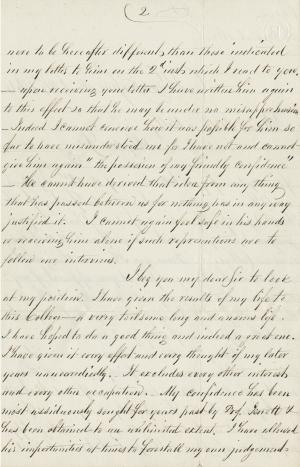 2
were to be hereafter different, than those indicated
in my letter to him on the 2d inst. which I read to you.
— upon receiving your letter I have written him again
to this effect so that he may be under no misapprehension
— Indeed I cannot conceive how it was possible for him so
far to have misunderstood me for I have not and cannot
give him again "the possession of my friendly confidence"
— He cannot have derived that idea from any thing
that has passed between us for nothing has in any way
justified it. I cannot again feel safe in his hands
or receiving him alone if such representations are to
follow our interviews.
I beg you my dear Sir to look
at my position. I have given the results of my life to
this — a very toilsome long and anxious life.
I have hoped to do a good thing and indeed a great one.
I have given it every effort and every thought of my later
years unreservedly. It excludes every other interest
and every other occupation. My confidence has been
most assiduously sought for years past by Prof.
has been obtained to an unlimited extent. I have allowed
his importunities at times to forestall my own judgement